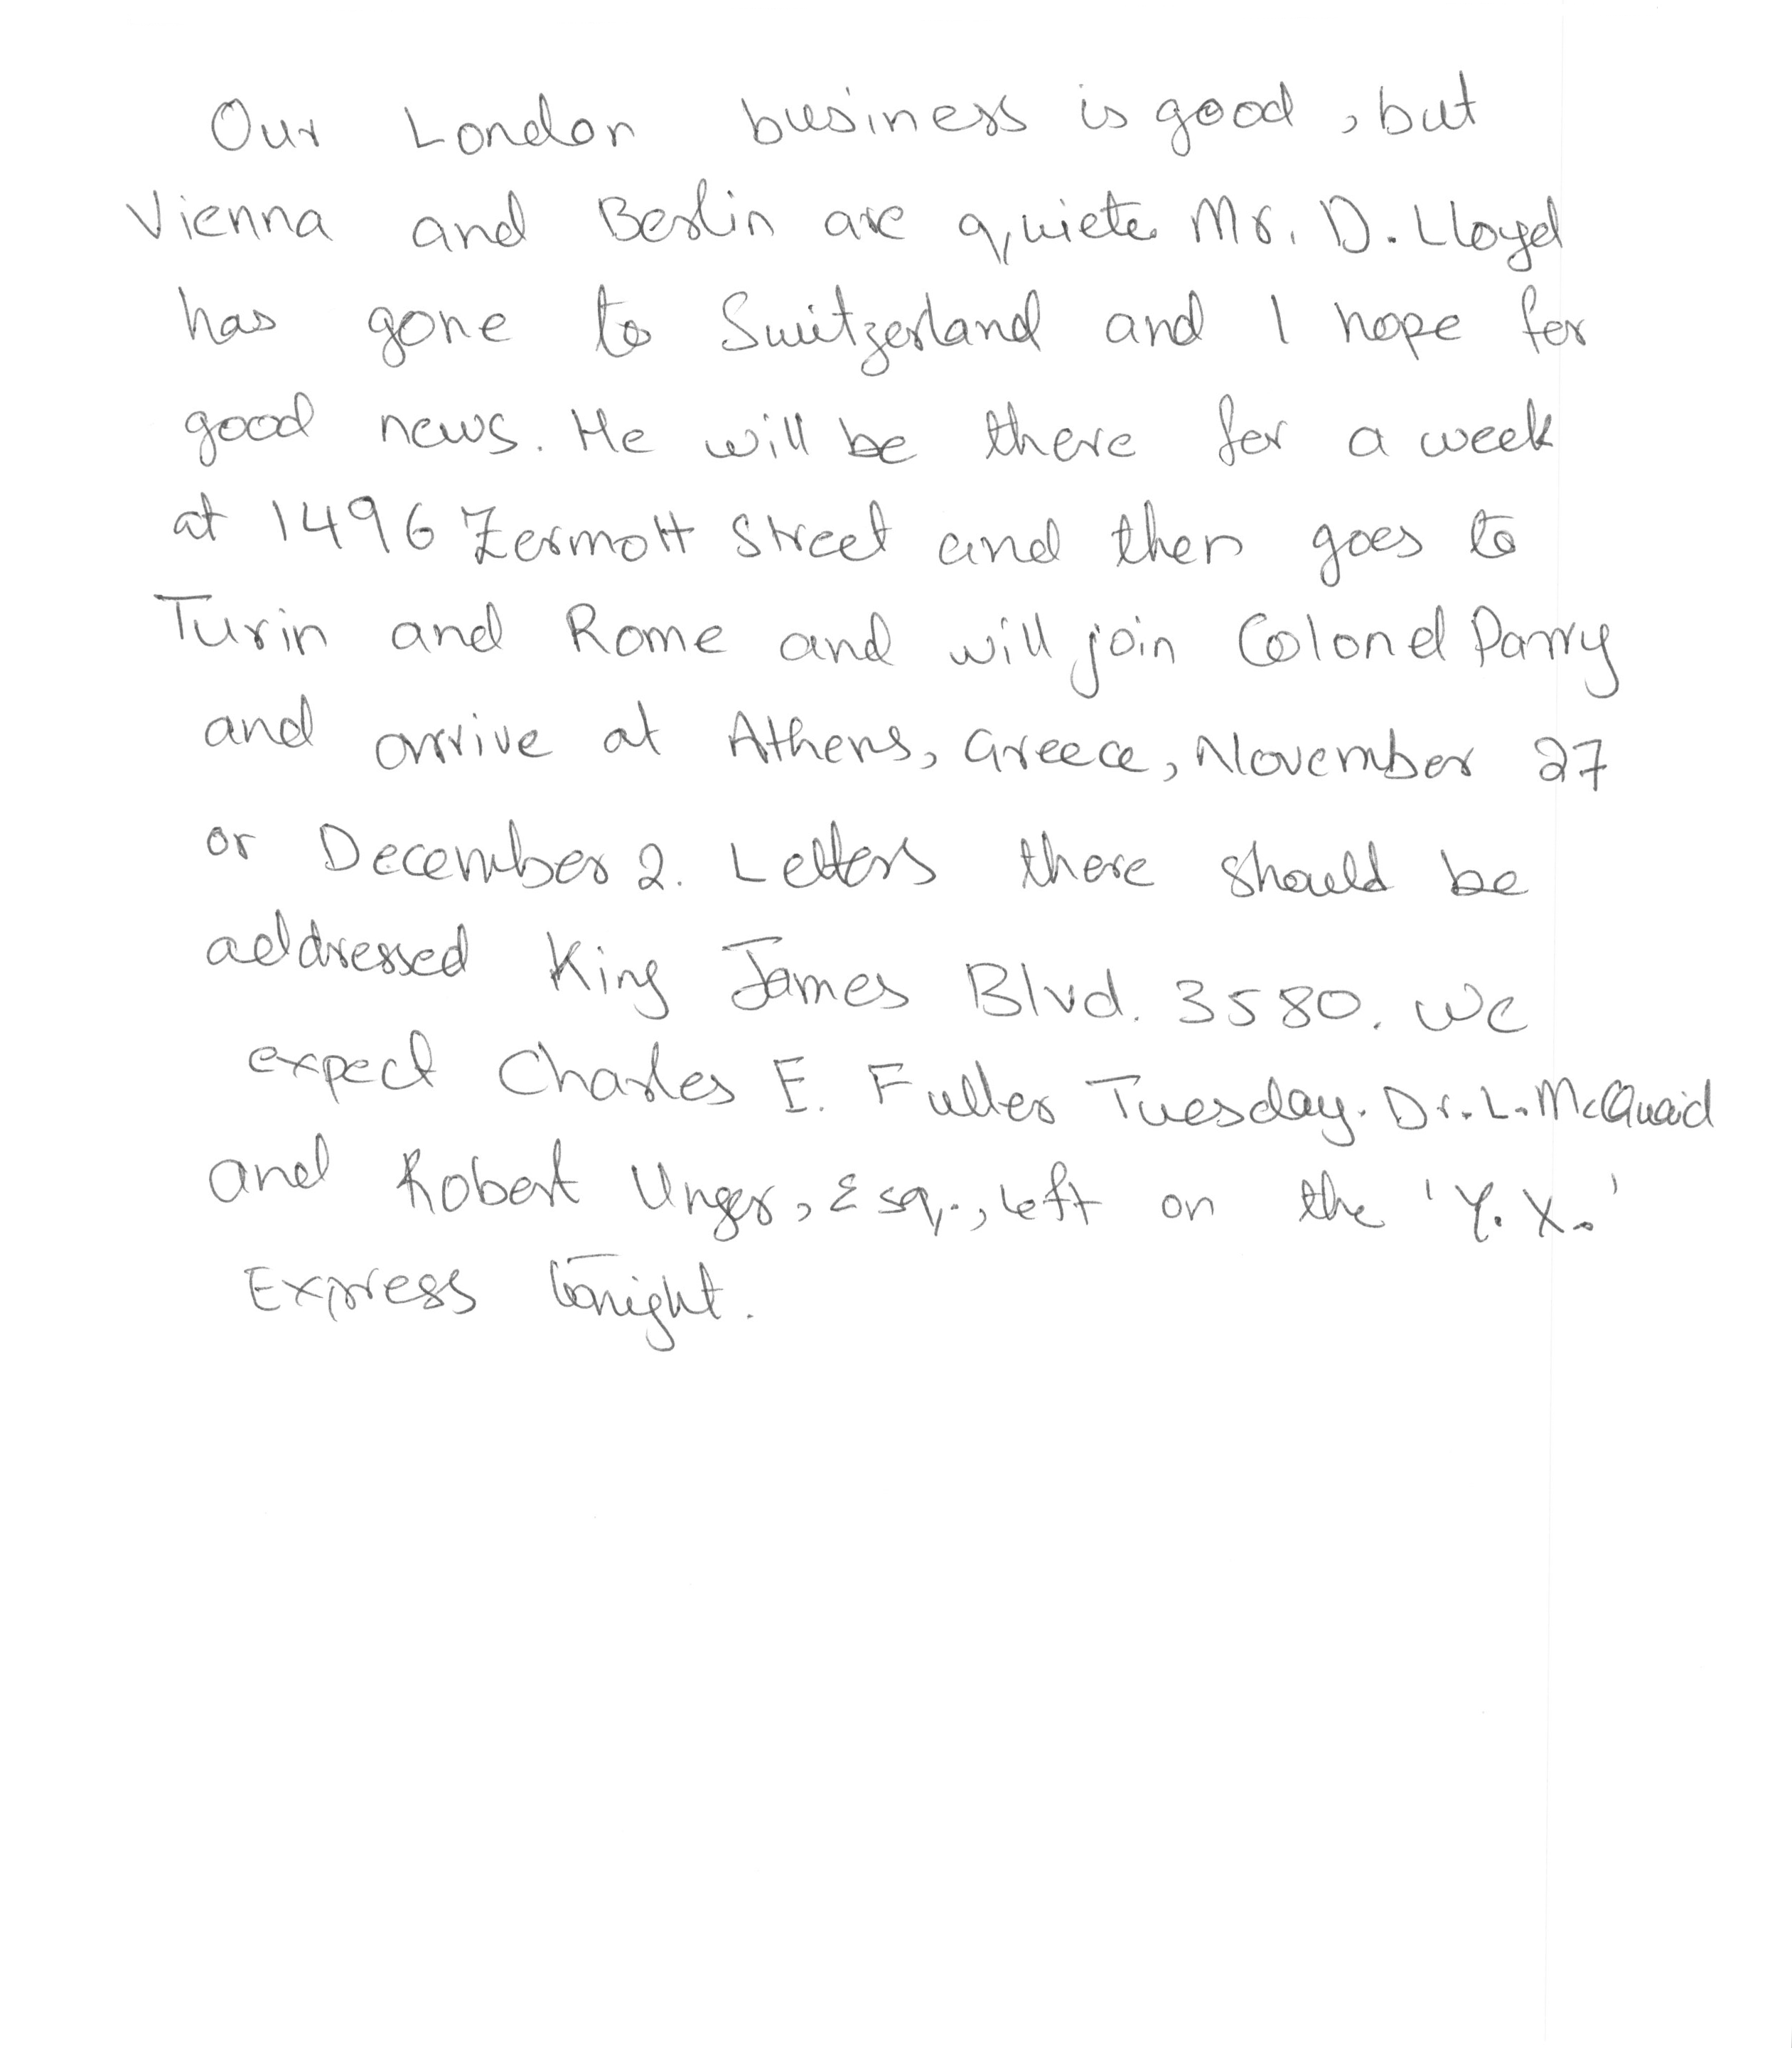 Our London business is good, but
Vienna and Berlin are quiete. Mr. D. Lloyd
has gone to Switzerland and I hope for
good news. He will be there for a week
at 1496 Zermott Street and then goes to
Turin and Rome and will join Colonel Parry
and arrive at Athens, Greece, November 27
or December 2. Letters there should be
addressed King James Blvd. 3580. We
expect Charles E. Fuller Tuesday. Dr. L. McQuaid
and Robert Unger, Esq., left on the 'Y. X.'
Express tonight.